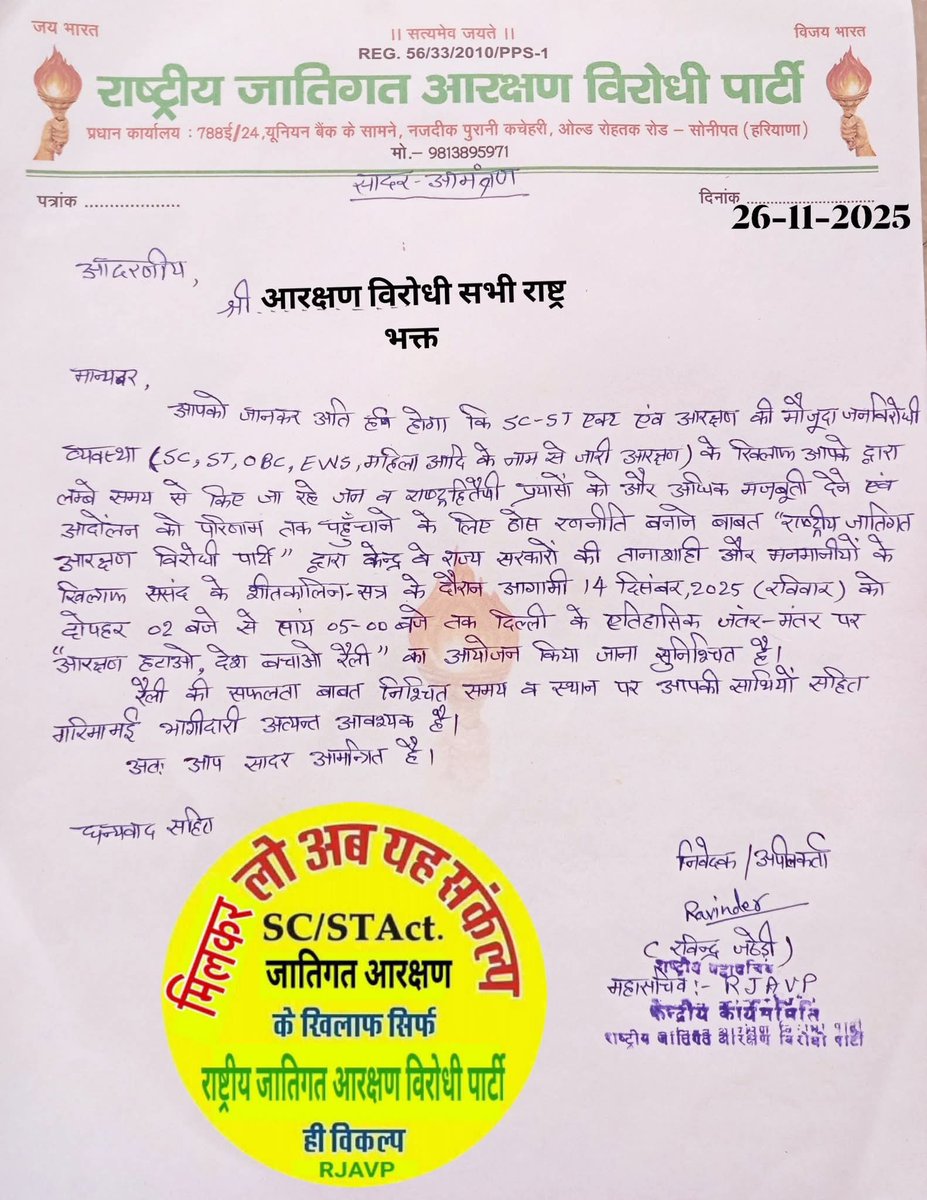 जय भारत
।। सत्यमेव जयते ।।
विजय भारत
REG. 56/33/2010/PPS-1
राष्ट्रीय जातिगत आरक्षण विरोधी पार्टी
प्रधान कार्यालय : 788ई/24,यूनियन बैंक के सामने, नजदीक पुरानी कचेहरी, ओल्ड रोहतक रोड – सोनीपत (हरियाणा)
मो.– 9813895971
सादर-आमंत्रण
पत्रांक ...................
दिनांक ...........................
26-11-2025
आदरणीय,
श्री आरक्षण विरोधी सभी राष्ट्र
भक्त
मान्यवर,
आपको जानकर अति हर्ष होगा कि SC-ST एक्ट एंव आरक्षण की मौजूदा जनविरोधी
व्यवस्था (SC, ST, OBC, EWS, महिला आदि के नाम से जारी आरक्षण) के खिलाफ आपके द्वारा
लम्बे समय से किए जा रहे जन व राष्ट्रहितैषी प्रयासों को और अधिक मजबूती देने एंव
आदोंलन को परिणाम तक पहुँचाने के लिए ठोस रणनीति बनाने बाबत "राष्ट्रीय जातिगत
आरक्षण विरोधी पार्टी" द्वारा केन्द्र वे राज्य सरकारों की तानाशाही और मनमानीयों के
खिलाफ संसद के शीतकालिन-सत्र के दौरान आगामी 14 दिसंबर,2025 (रविवार) को
दोपहर 02 बजे से सांय 05-00 बजे तक दिल्ली के एतिहासिक जंतर-मंतर पर
"आरक्षण हटाओ, देश बचाओ रैली" का आयोजन किया जाना सुनिश्चित है।
रैली की सफलता बाबत निश्चित समय व स्थान पर आपकी साथियों सहित
गरिमामई भागीदारी अत्यन्त आवश्यक है।
अतः आप सादर आमन्त्रित है।
धन्यवाद सहित
निवेदक/अपीलकर्ता
Ravinder
(रविन्द्र जठेड़ी)
राष्ट्रीय महासचिव
महासचिव:- RJAVP
केन्द्रीय कार्यसमिति
राष्ट्रीय जातिगत आरक्षण विरोधी पार्टी
मिलकर लो अब यह संकल्प
SC/STAct.
जातिगत आरक्षण
के खिलाफ सिर्फ
राष्ट्रीय जातिगत आरक्षण विरोधी पार्टी
ही विकल्प
RJAVP